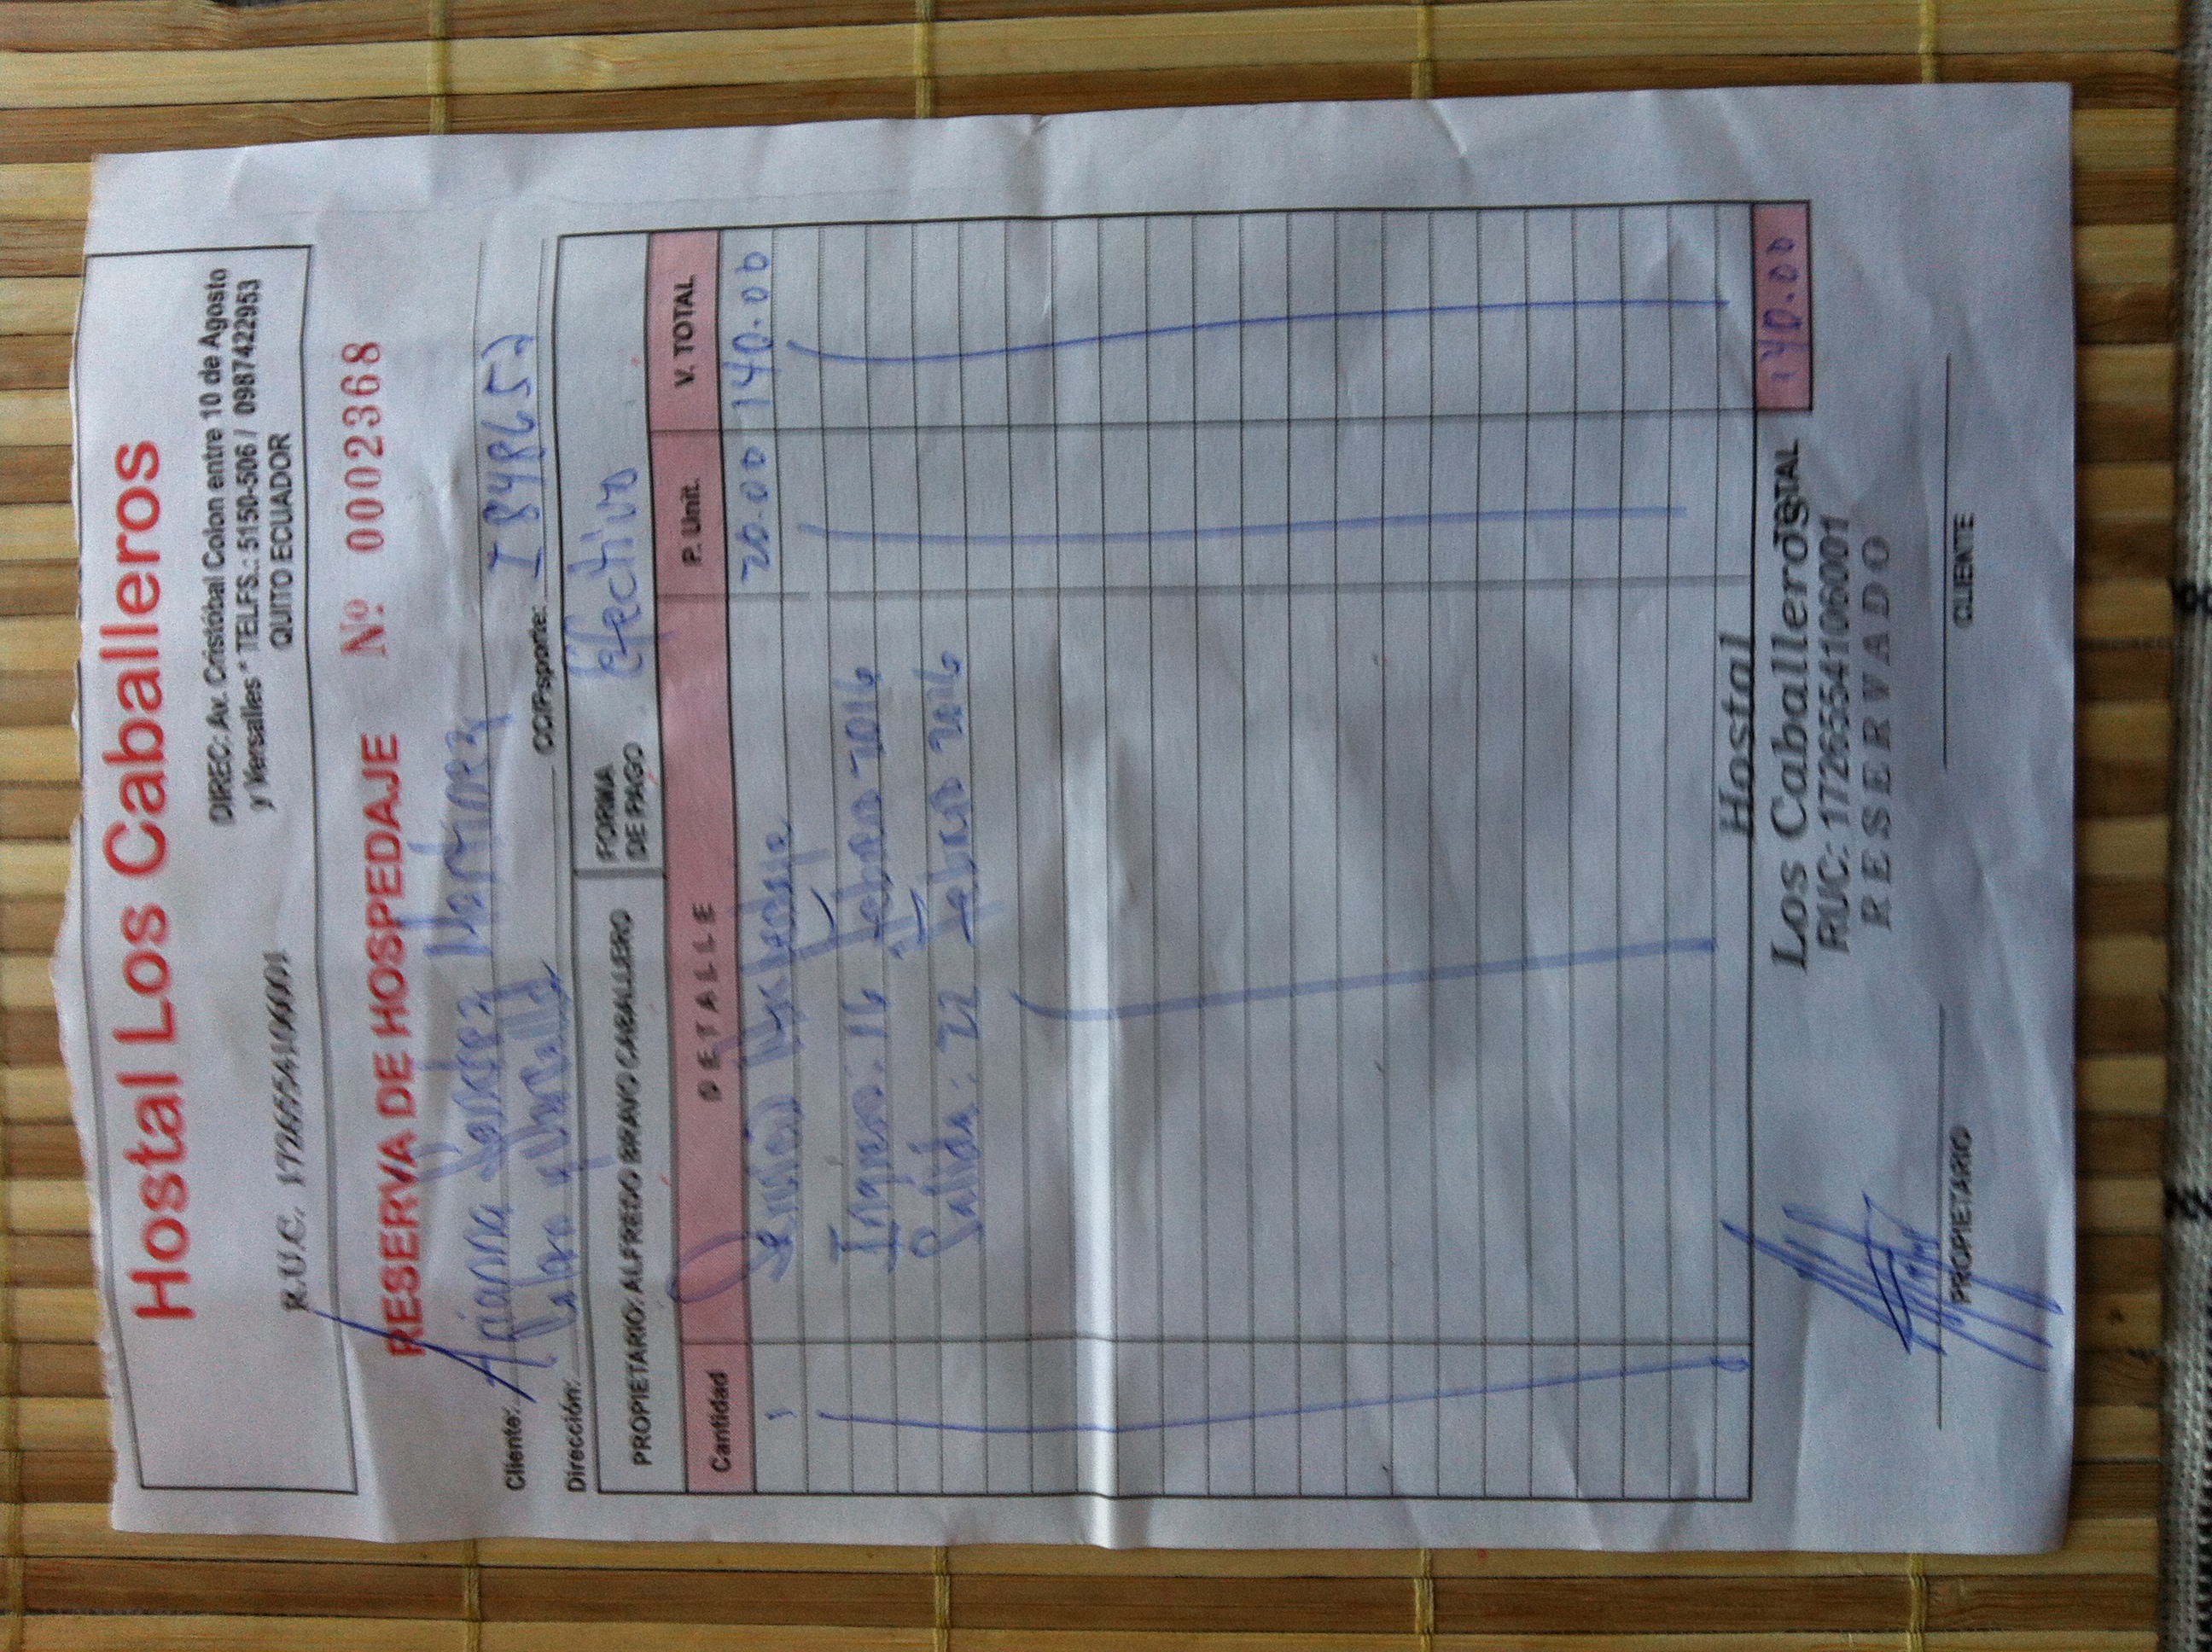 Hostal Los Caballeros
DIREC: Av. Cristóbal Colon entre 10 de Agosto
y Versalles * TELFS.: 5150-506 / 0987422953
QUITO ECUADOR
R.U.C. 1726554106001
RESERVA DE HOSPEDAJE Nº 0002368
Cliente: Arianna Sanchez Martinez
Dirección: Colon y CC/Psporte: I848657
PROPIETARIO: ALFREDO BRAVO CABALLERO FORMA DE PAGO Efectivo
Cantidad DETALLE P. Unit. V. TOTAL
1 Servicio Hospedaje 20.00 140.00
Ingreso: 16 febrero 2016
Salida: 22 febrero 2016
Hostal
Los Caballeros
TOTAL 140.00
RUC: 1726554106001
RESERVADO
PROPIETARIO CLIENTE